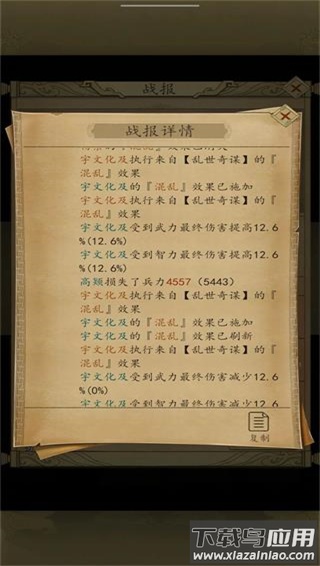 战报
战报详情
效果已消失
宇文化及执行来自【乱世奇谋】的『
混乱』效果
宇文化及的『混乱』效果已施加
宇文化及执行来自【乱世奇谋】的『
混乱』效果
宇文化及受到武力最终伤害提高12.6
%(12.6%)
宇文化及受到智力最终伤害提高12.6
%(12.6%)
高颎损失了兵力4557（5443）
宇文化及执行来自【乱世奇谋】的『
混乱』效果
宇文化及的『混乱』效果已施加
宇文化及的『混乱』效果已刷新
宇文化及执行来自【乱世奇谋】的『
混乱』效果
宇文化及受到武力最终伤害减少12.6
%(0%)
宇文化及受到智力最终伤害减少12.6
复制
下载鸟应用
www.xiazainiao.com